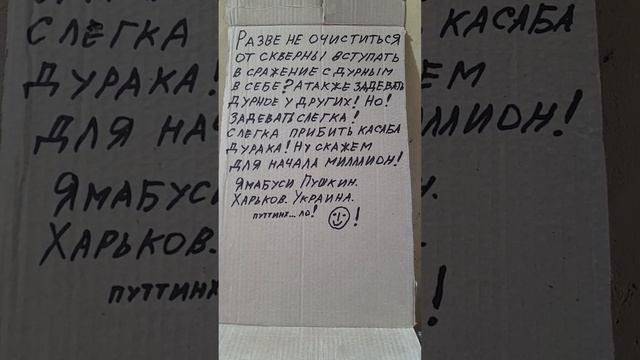 РАЗВЕ НЕ ОЧИСТИТЬСЯ
ОТ СКВЕРНЫ ВСТУПАТЬ
В СРАЖЕНИЕ С ДУРНЫМ
В СЕБЕ? А ТАКЖЕ ЗАДЕВАТЬ
ДУРНОЕ У ДРУГИХ! НО!
ЗАДЕВАТЬ СЛЕГКА!
СЛЕГКА ПРИБИТЬ КАСАБА
ДУРАКА! НУ СКАЖЕМ
ДЛЯ НАЧАЛА МИЛЛИОН!
ЯМАБУСИ ПУШКИН.
ХАРЬКОВ. УКРАИНА.
ПУТТИНХ... ЛО! !